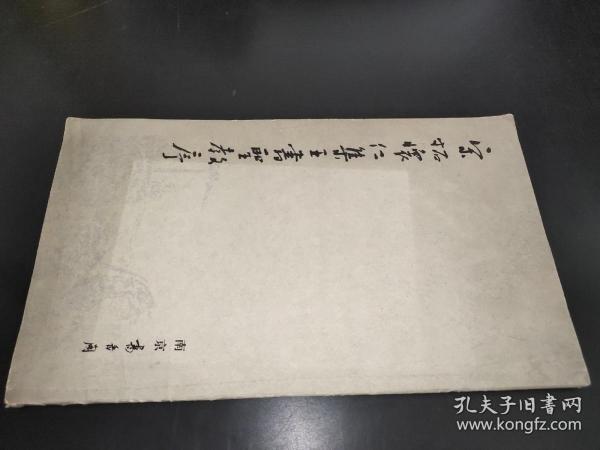 宋拓懷仁集王書聖教序
南京
孔夫子旧書网
www.kongfz.com